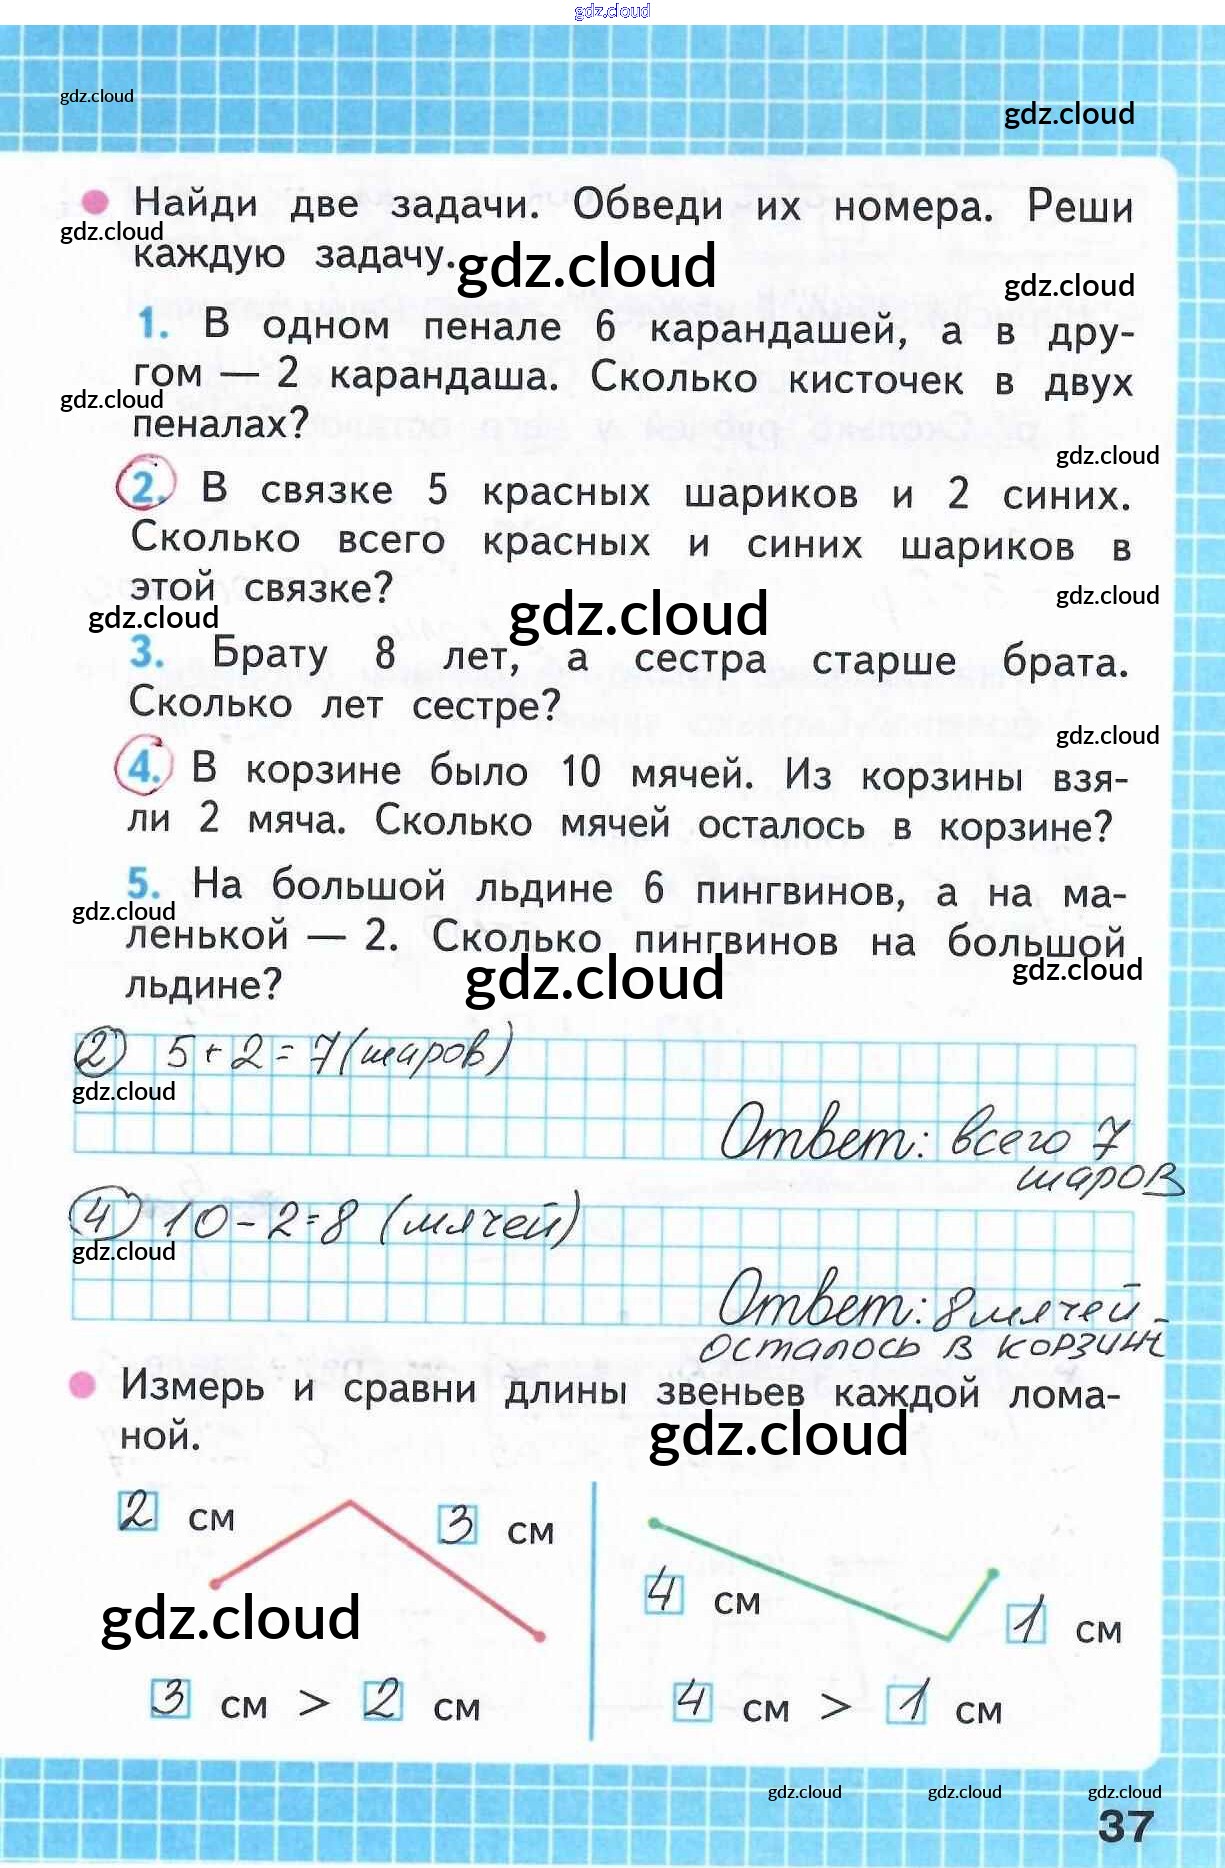 gdz.cloud
gdz.cloud
gdz.cloud
Найди две задачи. Обведи их номера. Реши
gdz.cloud
каждую задачу.
gdz.cloud
gdz.cloud
1. В одном пенале 6 карандашей, а в дру-
гом — 2 карандаша. Сколько кисточек в двух
gdz.cloud
пеналах?
gdz.cloud
2. В связке 5 красных шариков и 2 синих.
Сколько всего красных и синих шариков в
этой связке?
gdz.cloud
gdz.cloud
gdz.cloud
3. Брату 8 лет, а сестра старше брата.
Сколько лет сестре?
gdz.cloud
4. В корзине было 10 мячей. Из корзины взя-
ли 2 мяча. Сколько мячей осталось в корзине?
5. На большой льдине 6 пингвинов, а на ма-
gdz.cloud
ленькой — 2. Сколько пингвинов на большой
gdz.cloud
gdz.cloud
льдине?
2) 5+2=7(шаров)
gdz.cloud
Ответ: всего 7
шаров
4) 10-2=8 (мячей)
gdz.cloud
Ответ: 8 мячей
осталось в корзине
Измерь и сравни длины звеньев каждой лома-
ной.
gdz.cloud
2 см 3 см
4 см 1 см
gdz.cloud
3 см > 2 см 4 см > 1 см
gdz.cloud gdz.cloud gdz.cloud
37